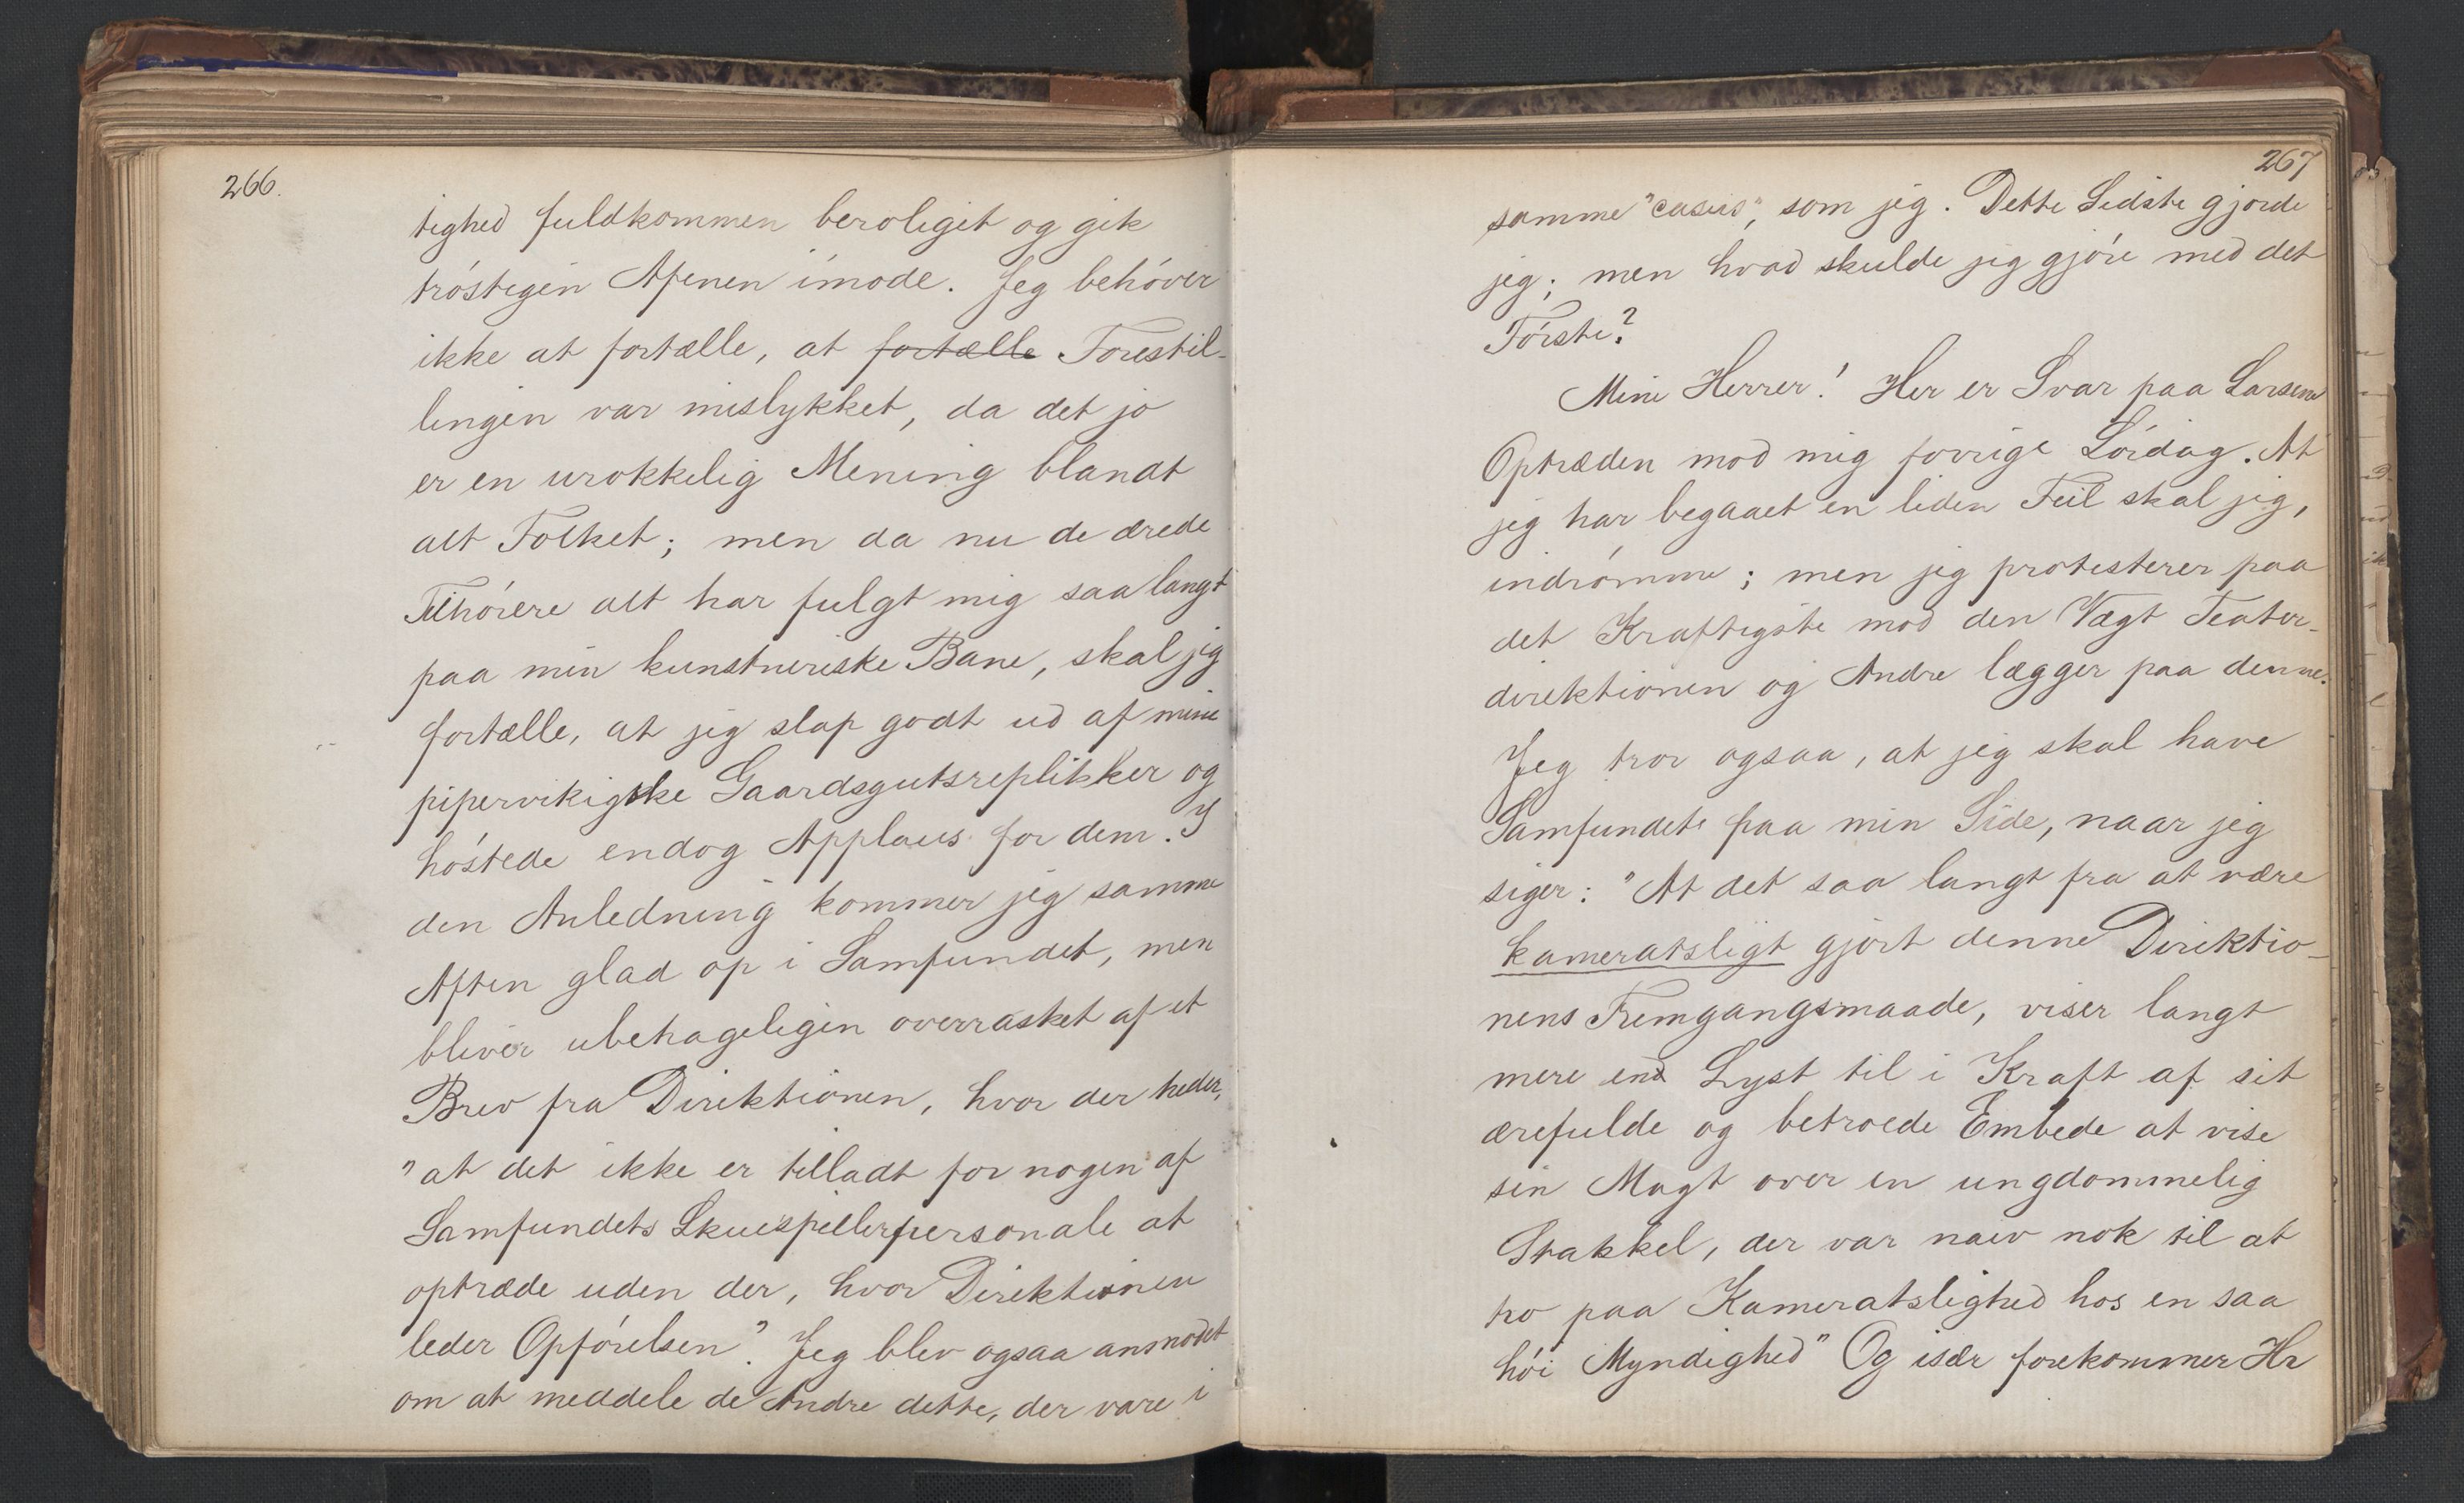 266.
tighed fuldkommen beroliget og gik
tróstigen Aftenen imøde. Jeg behóver
ikke at fortælle, at fortælle Forestil-
lingen var mislykket, da det jo
er en urokkelig Mening blandt
alt Folket; men da nu de ærede
Tilhórere alt har fulgt mig saa langt
paa min kunstneriske Bane, skal jeg
fortælle, at jeg slap godt ud af mine
pipervikigske Gaardsgutsreplikker og
hóstede endog Applaus for dem. I
den Anledning kommer jeg samme
Aften glad op i Samfundet, men
bliver ubehageligen overrasket af et
Brev fra Direktionen, hvor der heder,
"at det ikke er tilladt for nogen af
Samfundets Skuespillerpersonale at
optræde uden der, hvor Direktionen
leder Opfórelsen". Jeg blev ogsaa anmodet
om at meddele de Andre dette, der vare i
267
samme "casus", som jeg. Dette Sidste gjorde
jeg; men hvad skulde jeg gjóre med det
Fórste?
Mine Herrer! Her er Svar paa Larsens
Optræden mod mig forrige Lórdag. At
jeg har begaaet en liden Feil skal jeg,
indrómme; men jeg protesterer paa
det Kraftigste mod den Vægt Teater-
direktionen og Andre lægger paa denne.
Jeg tror ogsaa, at jeg skal have
Samfundet paa min Side, naar jeg
siger: "At det saa langt fra at være
kameratsligt gjort denne Direktio-
nens Fremgangsmaade, viser langt
mere end Lyst til i Kraft af sit
ærefulde og betroede Embede at vise
sin Magt over en ungdommelig
Stakkel, der var naiv nok til at
tro paa Kameratslighed hos en saa
hói Myndighed" Og især forekommer Hr